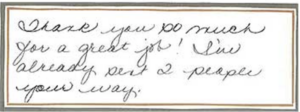 Thank you so much
for a great job! I've
already sent 2 people
your way.